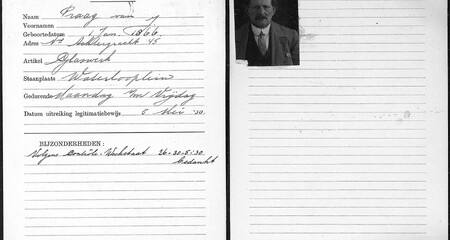 Naam Praag van J
Voornamen
Geboortedatum 1 Jan. 1866
Adres Nwe Achtergracht 45
Artikel Glaswerk
Staanplaats Waterlooplein
Gedurende Maandag t/m Vrijdag
Datum uitreiking legitimatiebewijs 5 Mei '30
BIJZONDERHEDEN:
Volgens Contrôle-Weekstaat 26-30-5-'30
Gedankt